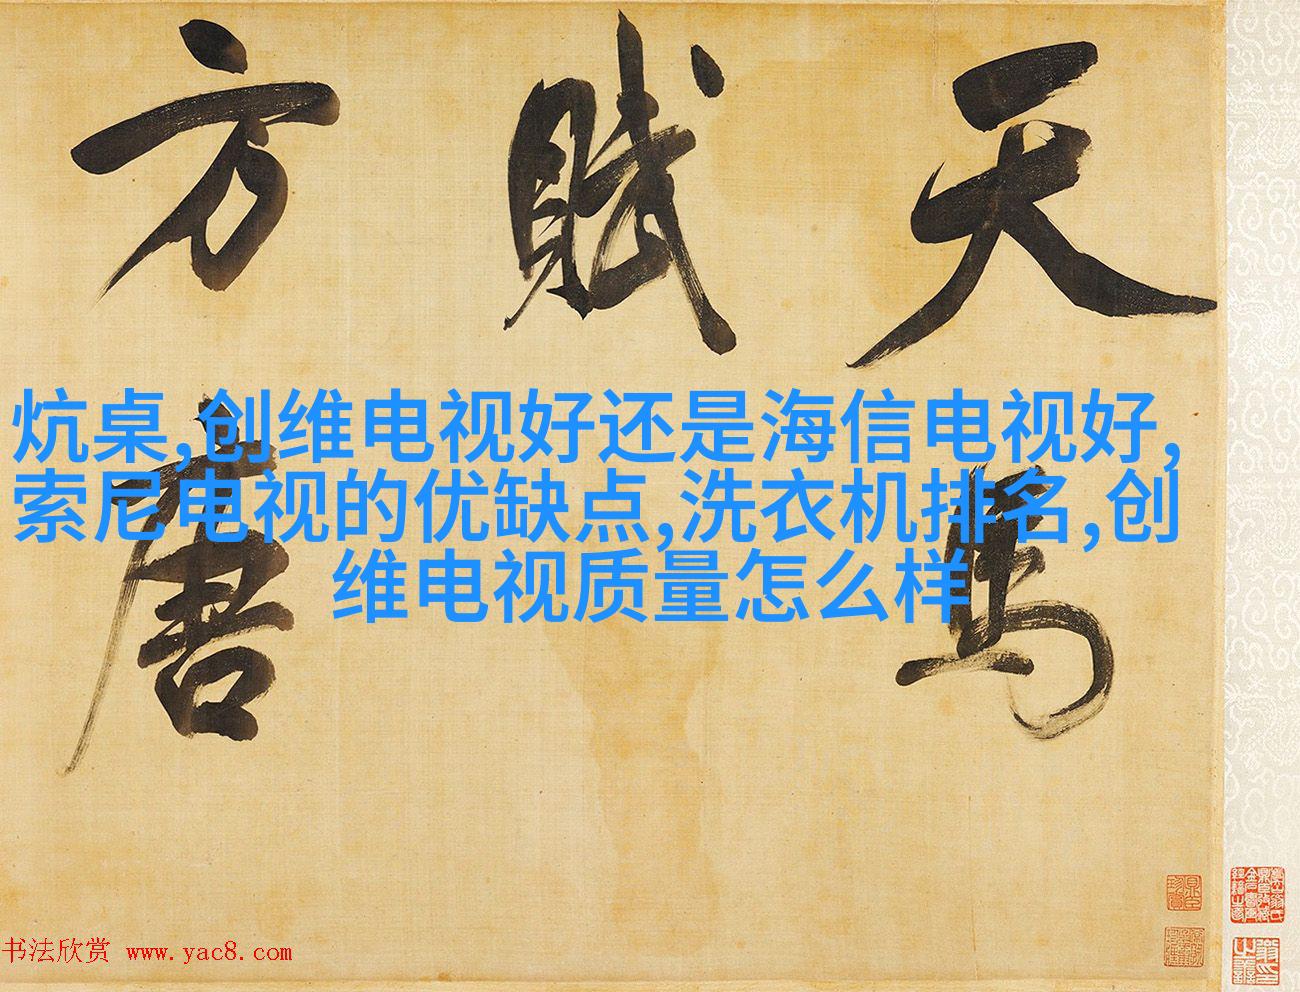 天馬
賦
方唐
炕桌,创维电视好还是海信电视好,
索尼电视的优缺点,洗衣机排名,创
维电视质量怎么样
书法欣赏 www.yac8.com